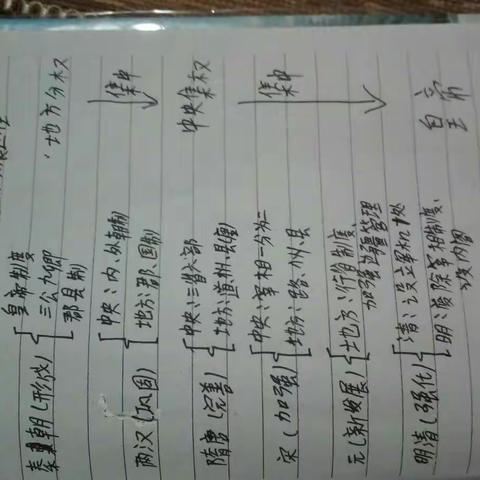 皇帝制度
秦朝(形成) 三公九卿 ·地方分权
郡县制
中央:内、外朝制 集中
两汉(巩固) 地方:郡、国制
中央:三省六部 中央集权
隋唐(完善) 地方:道、州、县(唐)
中央:宰相一分为二 集中
宋(加强) 地方:路、州、县
元(新发展) 地方:行省制度、
加强边疆管理
清:设立军机处 皇帝
明清(强化) 明:废除宰相制度、
设内阁